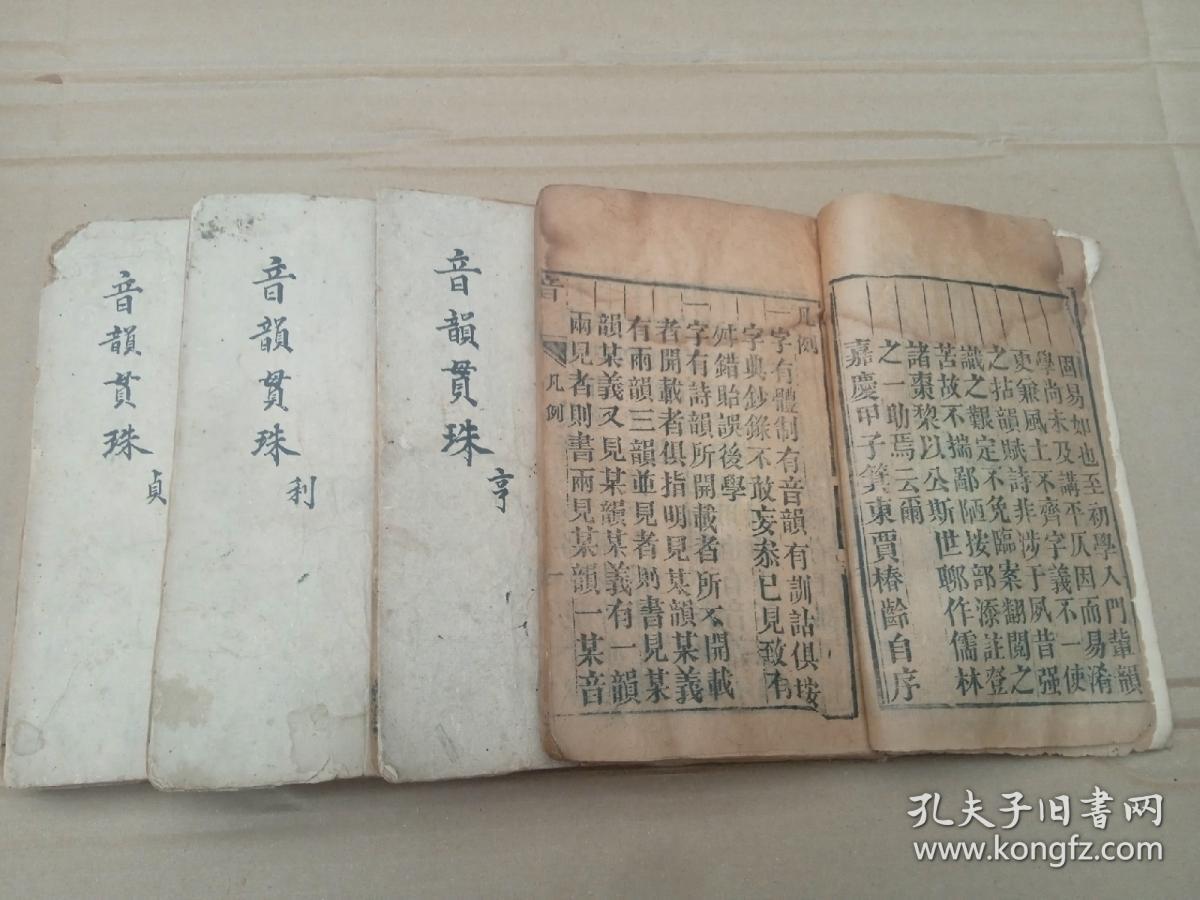 固易如也至初學入門輩韻
學尚未及講平仄因而易淆
更兼風土不齊字義不一使
之拈韻賦詩非涉于夙昔强
識之艱定不免臨案翻閱之
苦故不揣鄙陋按部添註登
諸棗黎以公斯世聊作儒林
之一助焉云爾
嘉慶甲子箕東賈椿齡自序
凡例
一字有體制有音韻有訓詁俱按
字典鈔錄不敢妄叅已見致有
舛錯貽誤後學
一字有詩韻所開載者所不開載
者開載者俱指明見某韻某義
有兩韻三韻並見者則書見某
韻某義又見某韻某義有一韻
兩見者則書兩見某韻一某音
音
凡例
一
音韻貫珠
亨
音韻貫珠
利
音韻貫珠
貞
孔夫子旧书网
www.kongfz.com